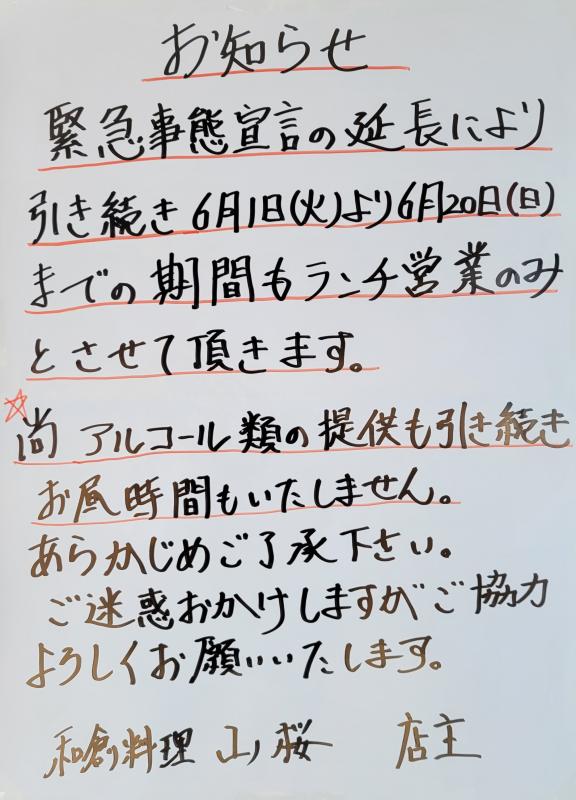 お知らせ
緊急事態宣言の延長により
引き続き6月1日(火)より6月20日(日)
までの期間もランチ営業のみ
とさせて頂きます。
☆
尚 アルコール類の提供も引き続き
お昼時間もいたしません。
あらかじめご了承下さい。
ご迷惑おかけしますがご協力
よろしくお願いいたします。
和創料理 山桜 店主